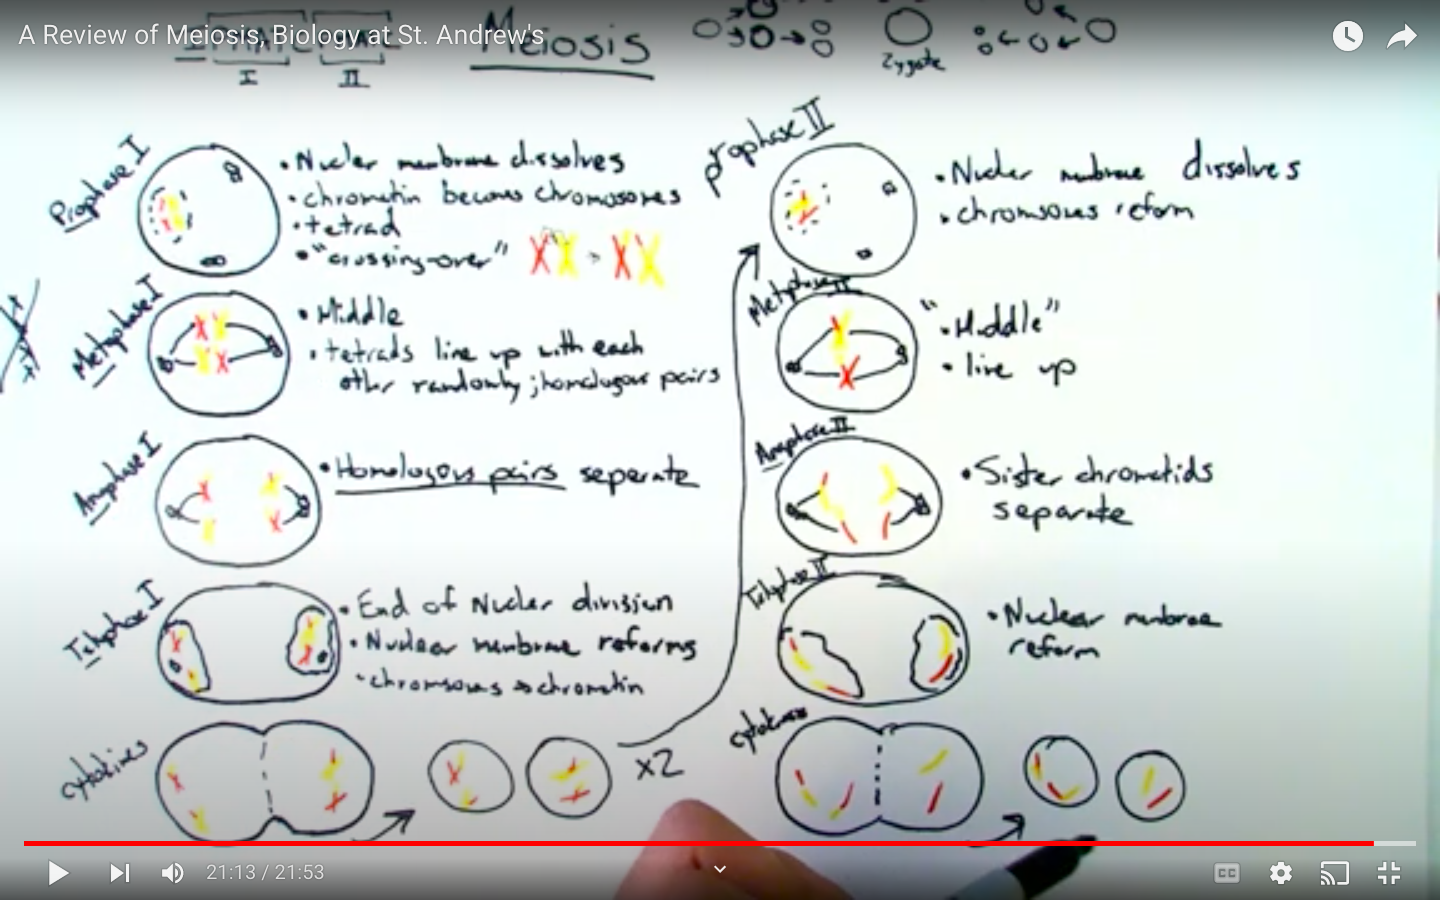 A Review of Meiosis, Biology at St. Andrew's
Meiosis
I
II
Zygote
Prophase I
• Nucler membrane dissolves
• chromatin becomes chromosomes
• tetrad
• "crossing-over"
Metphase I
• Middle
• tetrads line up with each
other randomly; homologous pairs
Anaphase I
• Homologous pairs seperate
Telphase I
• End of Nucler division
• Nuclear membrane reforms
• chromsomes → chromatin
cytokines
x2
prophase II
• Nucler membrane dissolves
• chromsomes reform
Metphase II
"Middle"
• line up
Anaphase II
• Sister chromatids
separate
Telphase II
• Nuclear membrae
reform
21:13 / 21:53
CC